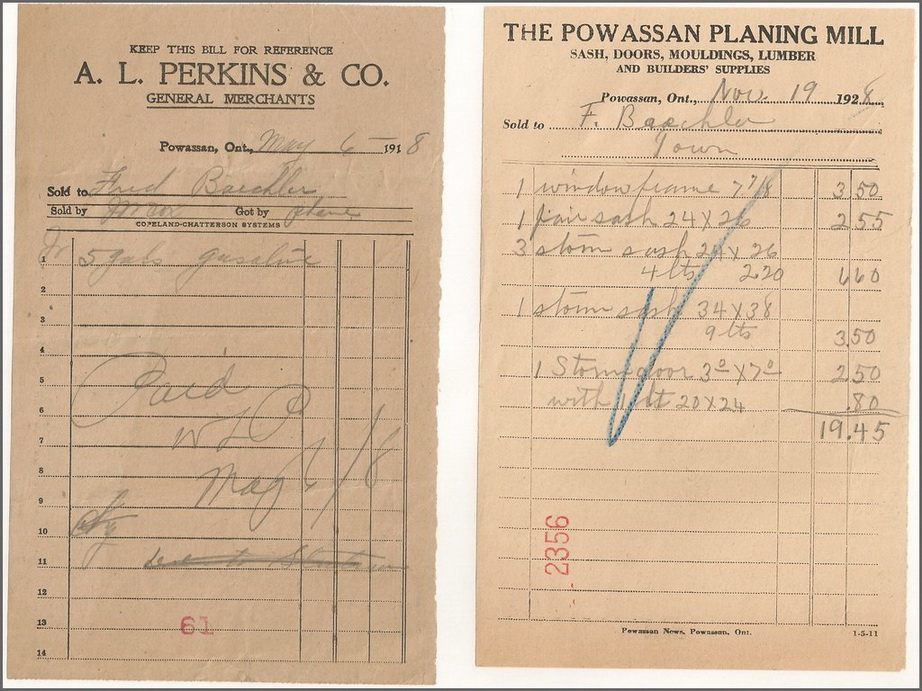 KEEP THIS BILL FOR REFERENCE
A. L. PERKINS & CO.
GENERAL MERCHANTS
Powassan, Ont., May 6 1918
Sold to Fred Baechler
Sold by Got by
COPELAND-CHATTERSON SYSTEMS
1 5 gals gasoline
2
3
4
5
6
7
8
9
10
11
12
13
14
Paid
W L P
May 6/18
61
THE POWASSAN PLANING MILL
SASH, DOORS, MOULDINGS, LUMBER
AND BUILDERS' SUPPLIES
Powassan, Ont., Nov. 19 1928
Sold to F. Baechler
Town
1 window frame 7 7/8 3.50
1 pair sash 24 X 26 2.55
3 storm sash 24 X 26
4 lts 2.20 6.60
1 storm sash 34 X 38
9 lts 3.50
1 Storm door 3⁰ X 7⁰ 2.50
with 1 lt 20 X 24 .80
19.45
2356
Powassan News, Powassan, Ont. 1-5-11